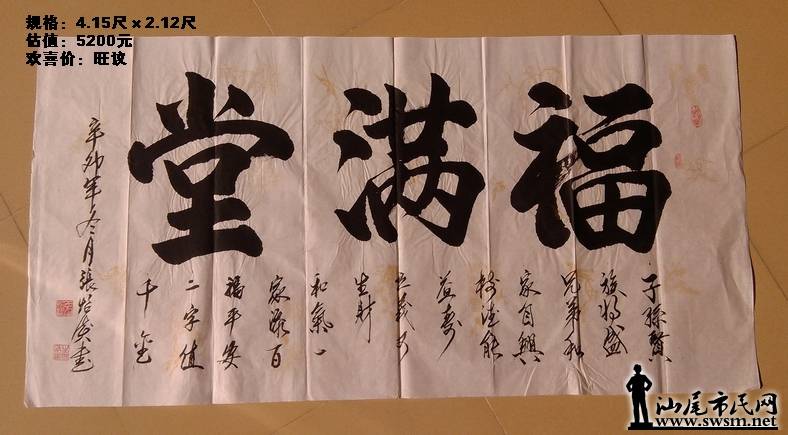 规格：4.15尺×2.12尺
估值：5200元
欢喜价：旺议
福满堂
子孫賢
族將盛
兄弟和
家自興
德能
益壽
義可
生財
和氣一
家臨百
福平安
二字值
千金
辛卯年冬月張書
汕尾市民网
www.swsm.net